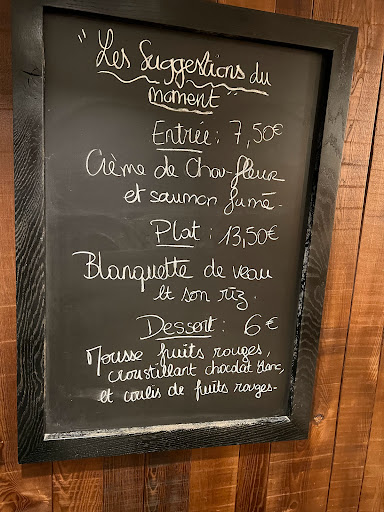 "Les Suggestions du
moment"
Entrée : 7,50€
Crème de Chou-fleur
et saumon fumé.
Plat : 13,50€
Blanquette de veau
et son riz.
Dessert : 6€
Mousse fruits rouges,
croustillant chocolat blanc,
et coulis de fruits rouges.